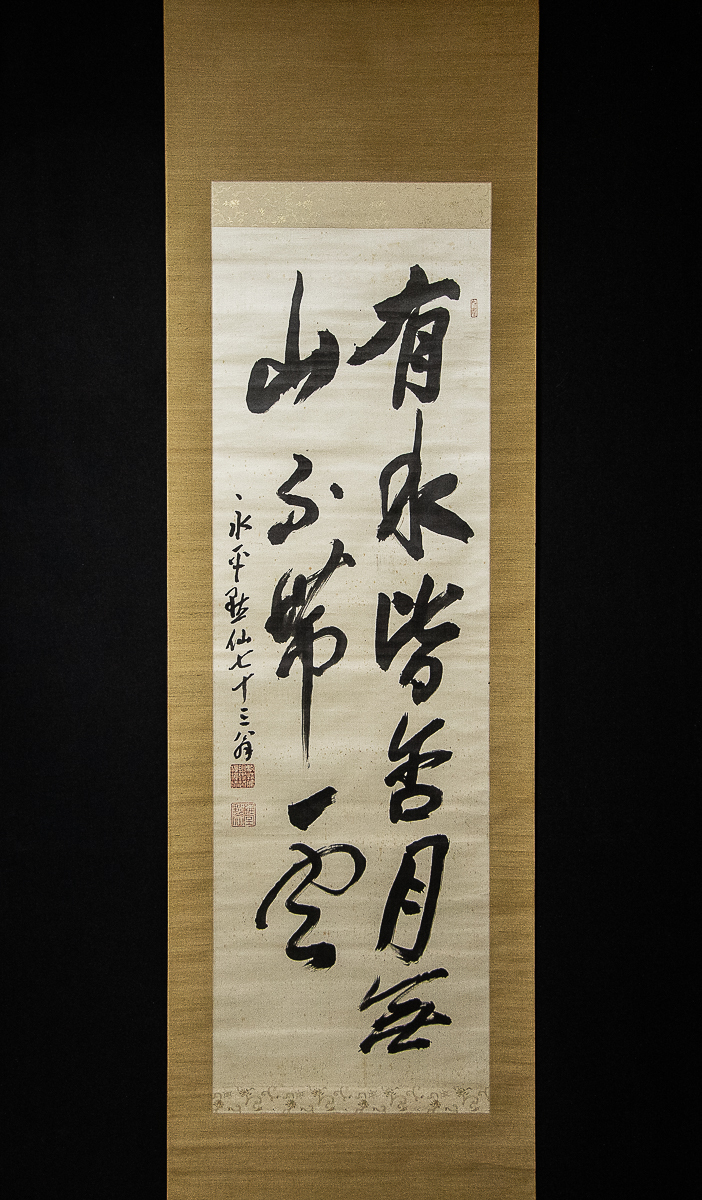 有水皆含月無
山不帯雲
永平黙仙七十三翁